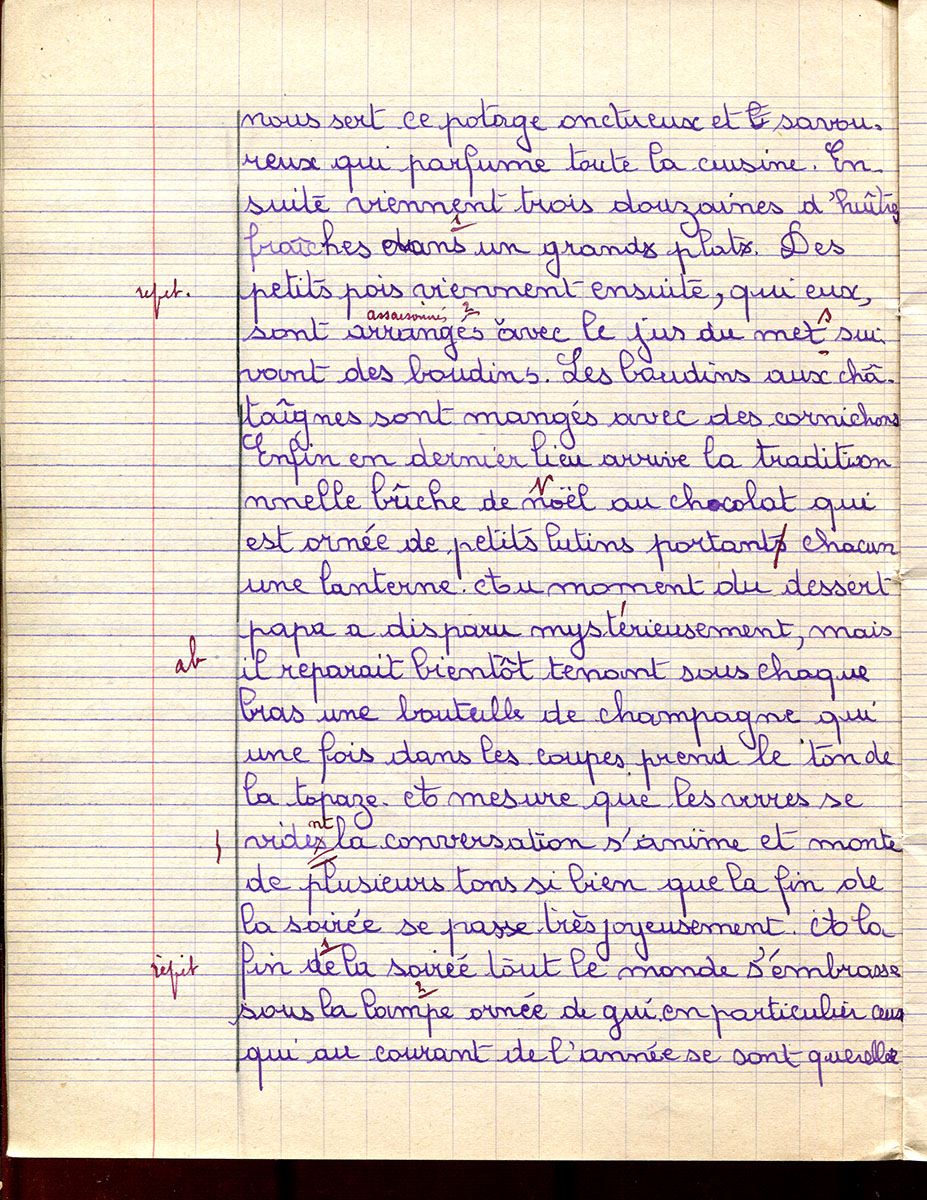 nous sert ce potage onctueux et savou-
reux qui parfume toute la cuisine. En-
suite viennent trois douzaines d'huîtres
1
fraîches dans un grands plats. Des
repet.
petits pois viennent ensuite, qui eux,
assaisonnés 2 s
sont arrangés avec le jus du met sui
vant des boudins. Les boudins aux châ-
taîgnes sont mangés avec des cornichons
Enfin en dernier lieu arrive la tradition
nnelle bûche de Noël au chocolat qui
est ornée de petits lutins portants chacun
une lanterne. Au moment du dessert
papa a disparu mystérieusement, mais
ab il reparait bientôt tenant sous chaque
bras une bouteille de champagne qui
une fois dans les coupes prend le ton de
la topaze. A mesure que les verres se
nt
vides la conversation s'anime et monte
de plusieurs tons si bien que la fin de
la soirée se passe très joyeusement. A la
1
répét fin de la soirée tout le monde s'embrasse
2
sous la lampe ornée de gui en particulier ceux
qui au courant de l'année se sont querellés